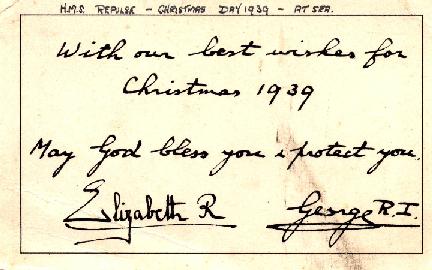 H.M.S. REPULSE - CHRISTMAS DAY 1939 - AT SEA.
With our best wishes for
Christmas 1939
May God bless you & protect you.
Elizabeth R George R.I.